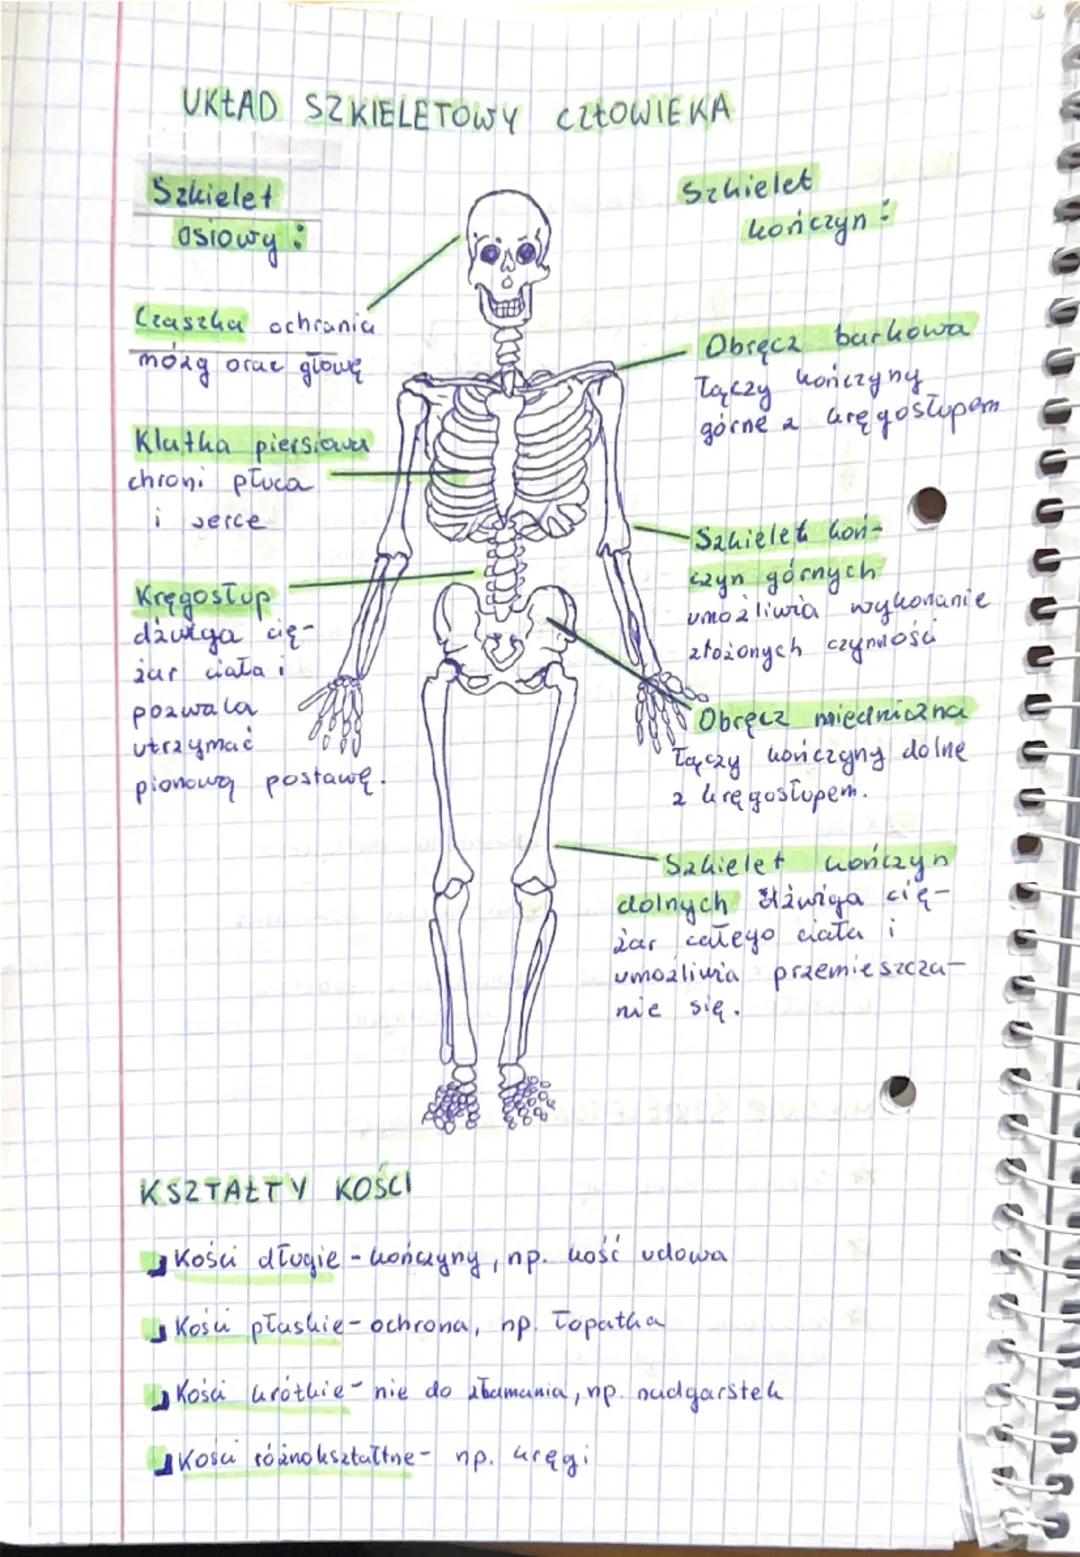 UKŁAD SZKIELETOWY CZŁOWIEKA
Szkielet
osiowy:
Czaszka ochrania
mózg oraz głowę
Klatka piersiowa
chroni płuca
i serce
Kręgosłup
dźwiga cię-
żar ciała i
pozwala
utrzymać
pionową postawę.
Szkielet
kończyn:
Obręcz barkowa
łączy kończyny
górne z kręgosłupem
Szkielet koń-
czyn górnych
umożliwia wykonanie
złożonych czynności
Obręcz miedniczna
łączy kończyny dolne
z kręgosłupem.
Szkielet kończyn
dolnych dźwiga cię-
żar całego ciała i
umożliwia przemieszcza-
nie się.
KSZTAŁTY KOŚCI
Kości długie - kończyny, np. kość udowa
Kości płaskie - ochrona, np. łopatka
Kości krótkie - nie do złamania, np. nadgarstek
Kości różnokształtne - np. kręgi